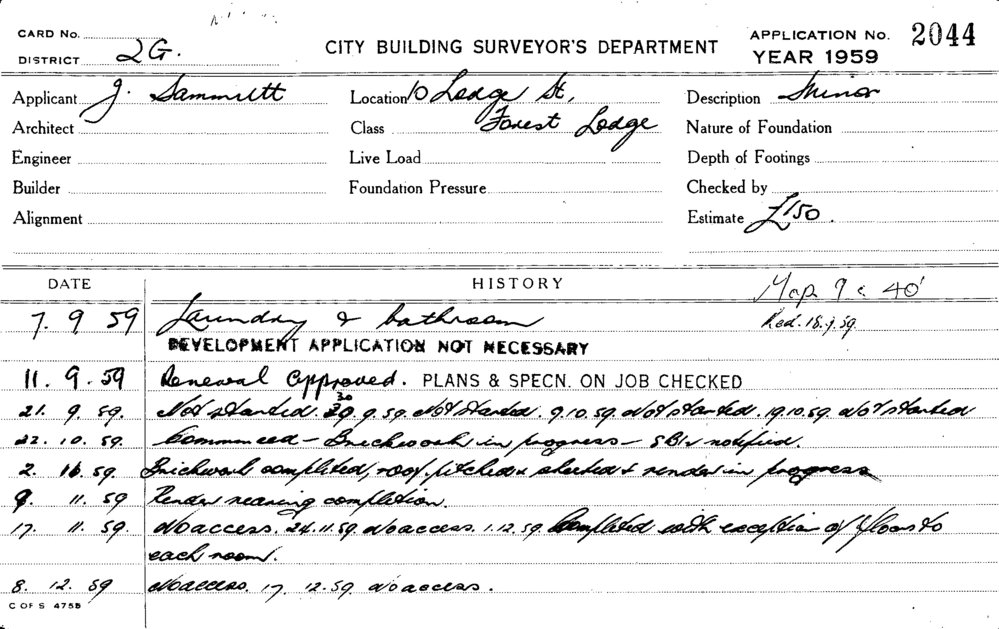 CARD No.
DISTRICT 2G.
CITY BUILDING SURVEYOR'S DEPARTMENT
APPLICATION No. 2044
YEAR 1959
Applicant J. Sammutt Location 10 Lodge St, Description Minor
Architect Class Forest Lodge Nature of Foundation
Engineer Live Load Depth of Footings
Builder Foundation Pressure Checked by
Alignment Estimate £150.
DATE HISTORY Map 9 c 40'
7. 9 59 Laundry & bathroom Red. 18.9.59.
DEVELOPMENT APPLICATION NOT NECESSARY
11. 9. 59 Renewal approved. PLANS & SPECN. ON JOB CHECKED
21. 9. 59. Not started. 30. 9. 59. Not started. 9.10.59. Not started. 19.10.59. Not started
22. 10. 59. Commenced – Brickwork in progress – notified.
2. 59. Brickwork completed, roof pitched & sheeted & render in progress
9. 11. 59 Render nearing completion.
17. 11. 59. No access. 24.11.59. No access. 1.12.59. Completed with exception of floors to
each room.
8. 12. 59 No access. 17. 12.59. No access.
C OF S 475B